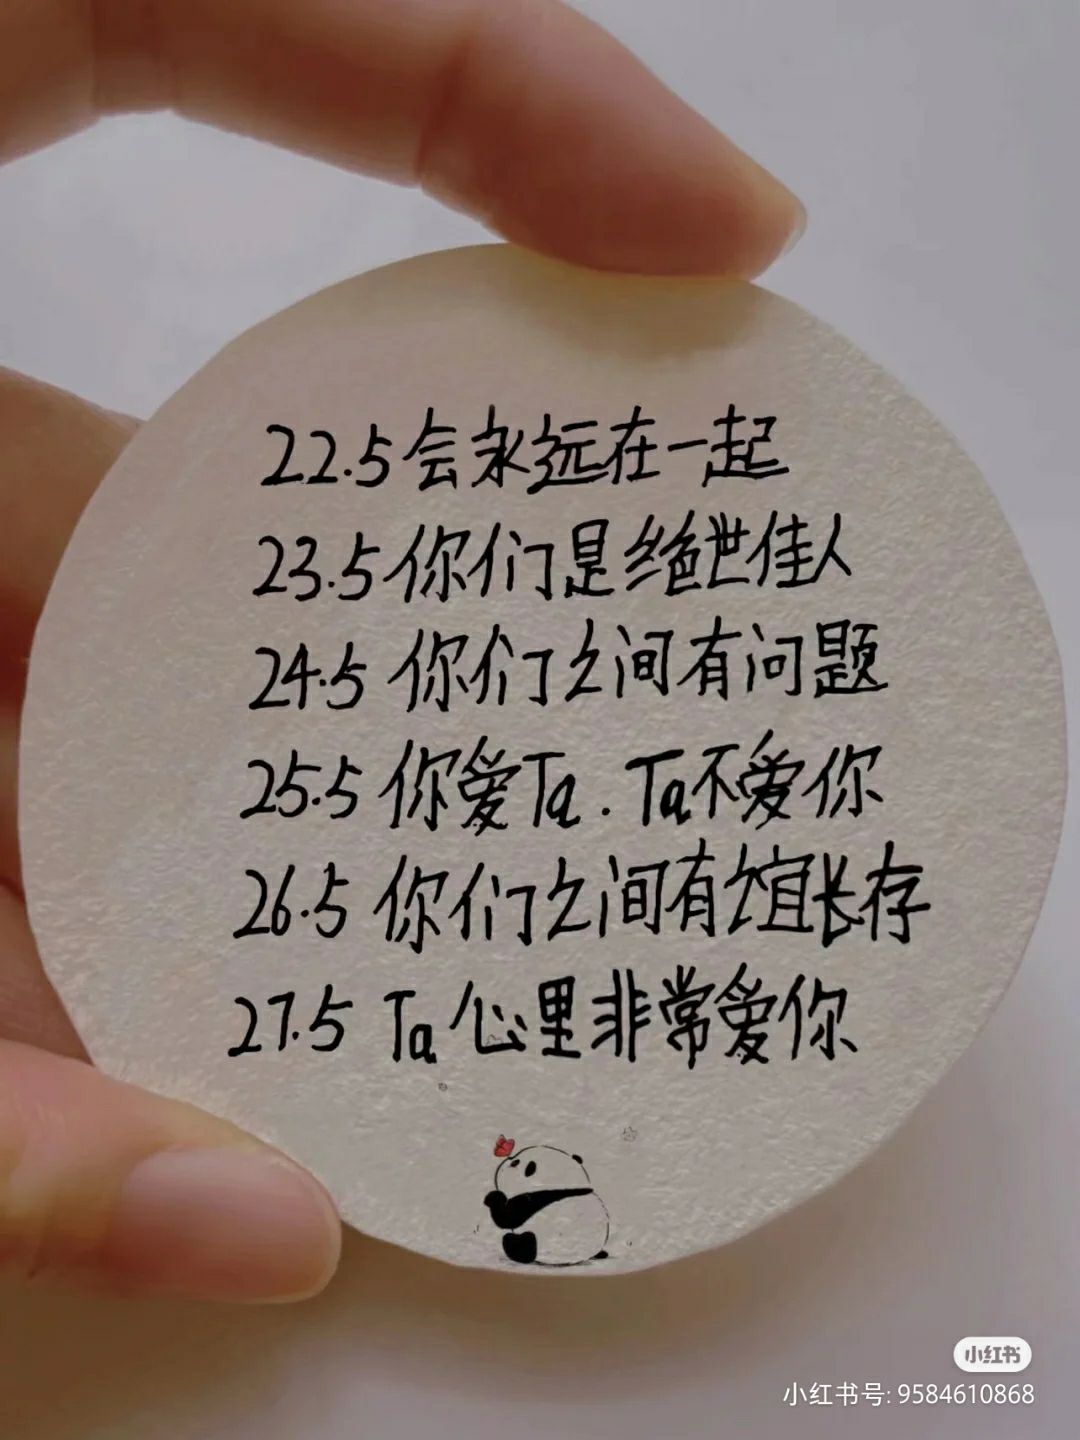 22.5会永远在一起
23.5你们是绝世佳人
24.5你们之间有问题
25.5你爱Ta.Ta不爱你
26.5你们之间有谊长存
27.5 Ta心里非常爱你
小红书
小红书号: 9584610868